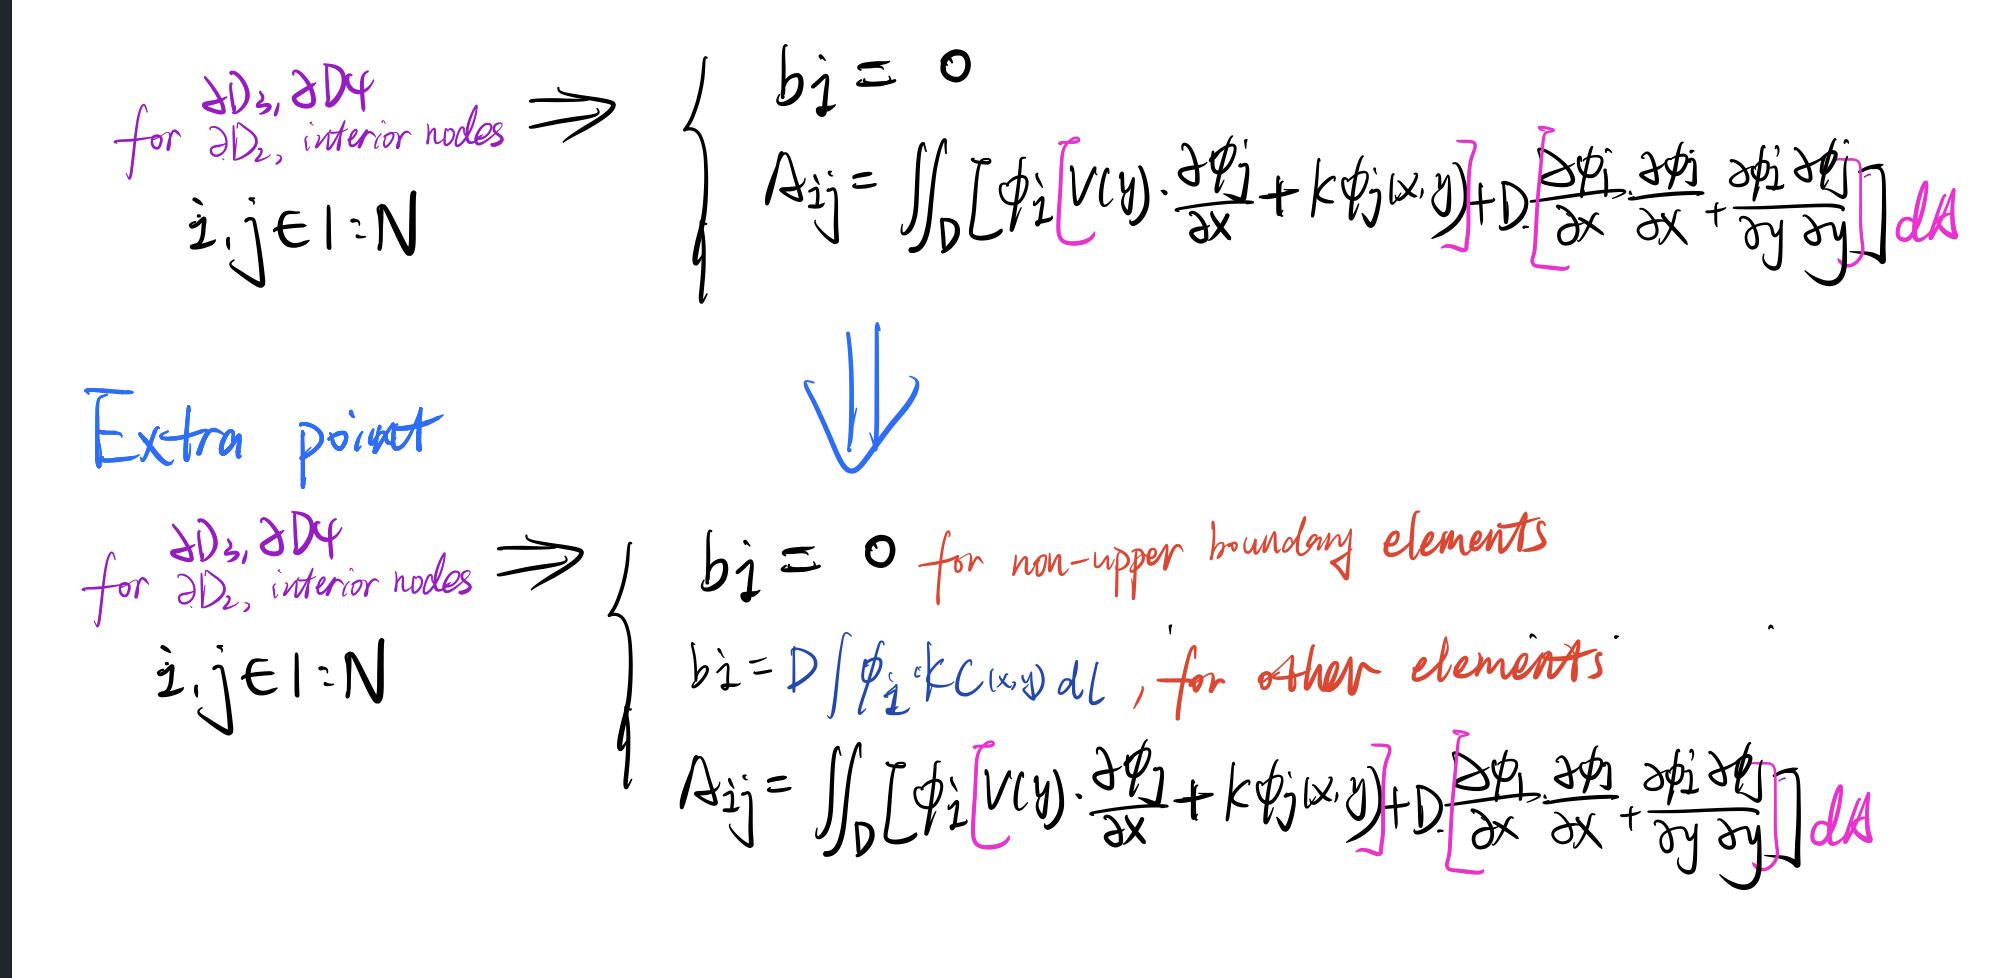 ∂D₃, ∂D4
for ∂D₂, interior nodes ⇒
i, j ∈ 1:N
bi = 0
Aij = ∬_D [ϕi [V(y)·∂ϕj/∂x + Kϕj(x,y)] + D[∂ϕi/∂x ∂ϕj/∂x + ∂ϕi/∂y ∂ϕj/∂y]] dA
⇓
Extra point
∂D₃, ∂D4
for ∂D₂, interior nodes ⇒
i, j ∈ 1:N
bi = 0 for non-upper boundary elements
bi = D∫ϕi·KC(x,y) dl, for other elements
Aij = ∬_D [ϕi [V(y)·∂ϕj/∂x + Kϕj(x,y)] + D[∂ϕi/∂x ∂ϕj/∂x + ∂ϕi/∂y ∂ϕj/∂y]] dA